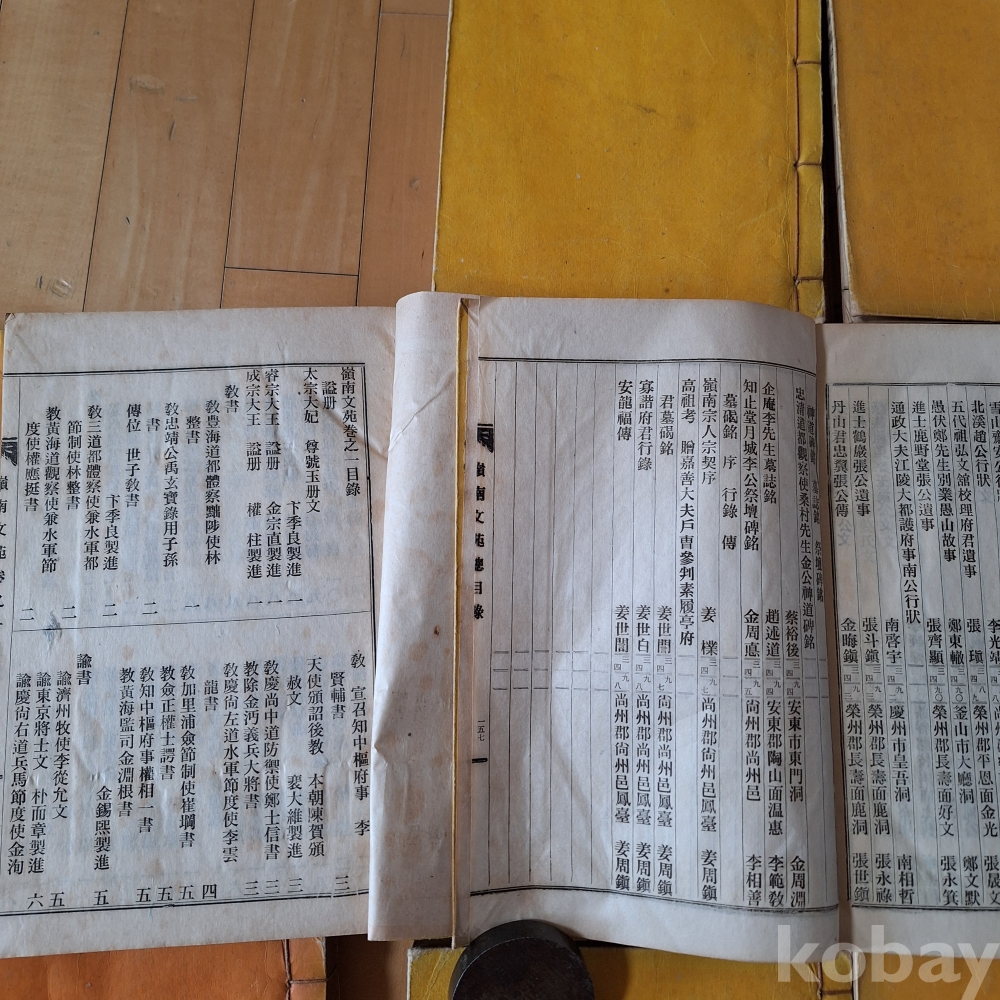 北溪趙公行狀
五代祖弘文舘校理府君遺事 鄭東轍 三四九八 釜山市大廳洞 鄭文默
愚伏鄭先生別業愚山故事 張齊顯 三四九〇 榮州郡長壽面好文 張永箕
進士鹿野堂張公遺事
通政大夫江陵大都護府事南公行狀 南啓宇 三四九一 慶州市皇吾洞 南相哲
進士鶴巖張公遺事 張斗鎭 三四九二 榮州郡長壽面鹿洞 張永祿
丹山君忠翼張公傳 金晦鎭 三四九三 榮州郡長壽面鹿洞 張世鎭
忠清道都觀察使桑村先生金公神道碑銘 蔡裕後 三四九四 安東市東門洞 金周淵
企庵李先生墓誌銘 趙述道 三四九四 安東郡陶山面温惠 李範敎
知止堂月城李公祭壇碑銘 金周悳 三四九五 尚州郡尙州邑 李相善
墓碣銘 序 行錄 傳
嶺南宗人宗契序 姜樸 三四九七 尚州郡尙州邑鳳臺 姜周鎭
高祖考 贈嘉善大夫戶曺參判素履亭府
君墓碣銘 姜世誾 三四九七 尚州郡尙州邑鳳臺 姜周鎭
寡諧府君行錄 姜世白 三四九八 尚州郡尙州邑鳳臺 姜周鎭
安龍福傳 姜世誾 三四九八 尚州郡尙州邑鳳臺 姜周鎭
嶺南文苑總目錄
一五七
嶺南文苑卷之一目錄
諡册
太宗大妃 尊號玉册文 卞季良製進 一
睿宗大王 諡册 金宗直製進 一
成宗大王 諡册 權柱製進 一
敎書
敎豊海道都體察黜陟使林
整書 一
敎忠靖公禹玄寶錄用子孫
書 二
傳位 世子敎書 卞季良製進 二
敎三道都體察使兼水軍都
節制使林整書 二
敎黃海道觀察使兼水軍節
度使權應挺書 二
敎 宣召知中樞府事 李
賢輔書 三
天使頒詔後敎 本朝陳賀頒
赦文 裵大維製進 三
敎慶尚中道防禦使鄭士信書 三
敎除金沔義兵大將書 三
敎慶尙左道水軍節度使李雲
龍書 四
敎加里浦僉節制使崔堈書 五
敎僉正權士諤書 五
敎知中樞府事權相一書 五
敎黃海監司金淵根書 五
金錫熙製進 五
諭書
諭濟州牧使李從允文 五
諭東京將士文 朴而章製進 五
諭慶尙右道兵馬節度使金洵 六
嶺南文苑卷之一
kobay